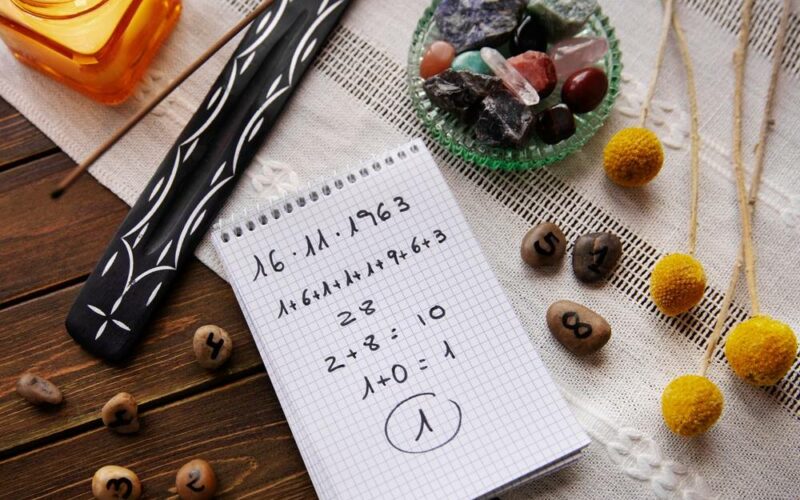 16.11.1963
1+6+1+1+1+9+6+3
28
2+8 = 10
1+0 = 1
1
5
1
8
4
3
2